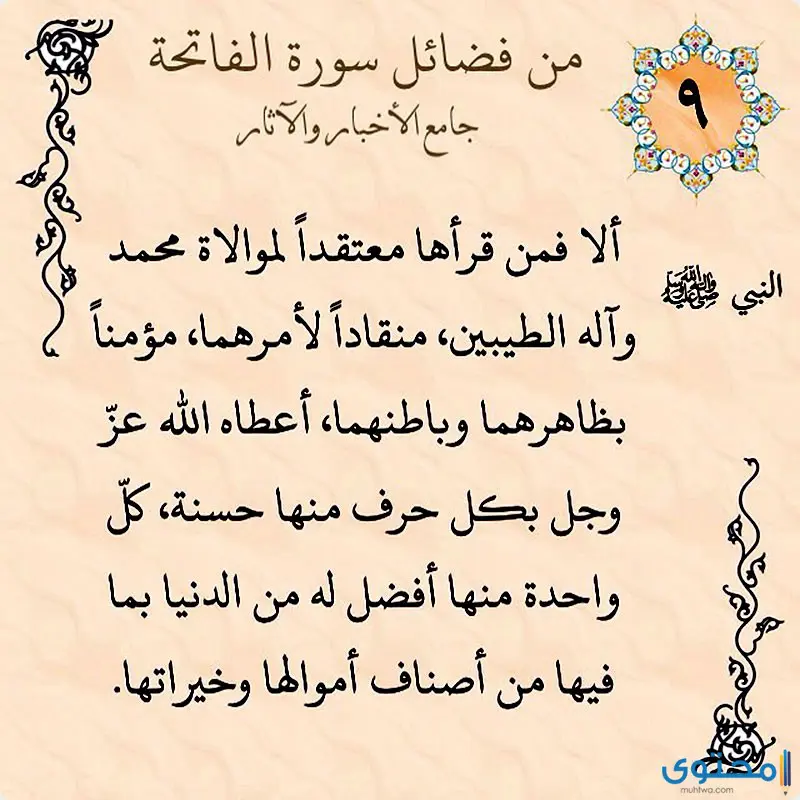 من فضائل سورة الفاتحة
جامع الأخبار والآثار
٩
النبي ﷺ
ألا فمن قرأها معتقداً لموالاة محمد
وآله الطيبين، منقاداً لأمرهما، مؤمناً
بظاهرهما وباطنهما، أعطاه الله عزّ
وجل بكل حرف منها حسنة، كلّ
واحدة منها أفضل له من الدنيا بما
فيها من أصناف أموالها وخيراتها.
محتوى
muhtwa.com